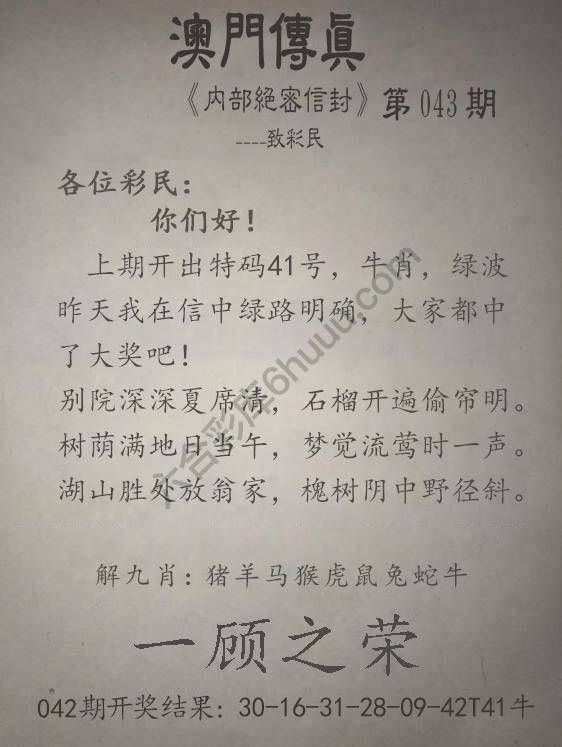 澳門傳真
《内部絕密信封》第043期
----致彩民
各位彩民:
你们好!
上期开出特码41号,牛肖,绿波
昨天我在信中绿路明确,大家都中
了大奖吧!
别院深深夏席清,石榴开遍偷帘明。
树荫满地日当午,梦觉流莺时一声。
湖山胜处放翁家,槐树阴中野径斜。
六合彩库6huuu.com
解九肖:猪羊马猴虎鼠兔蛇牛
一顾之荣
042期开奖结果:30-16-31-28-09-42T41牛